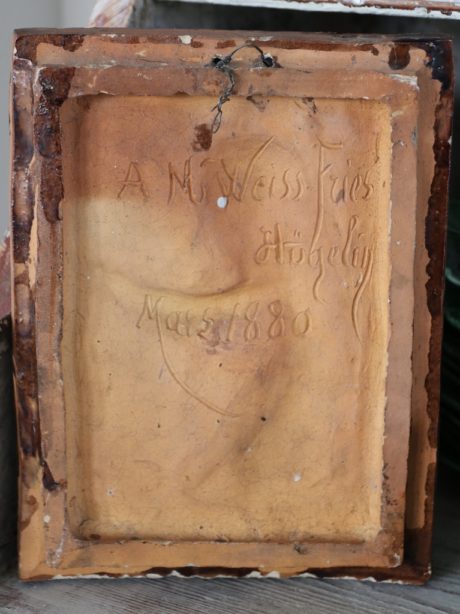 A M. Weiss-Fries
Hügelin
März 1880